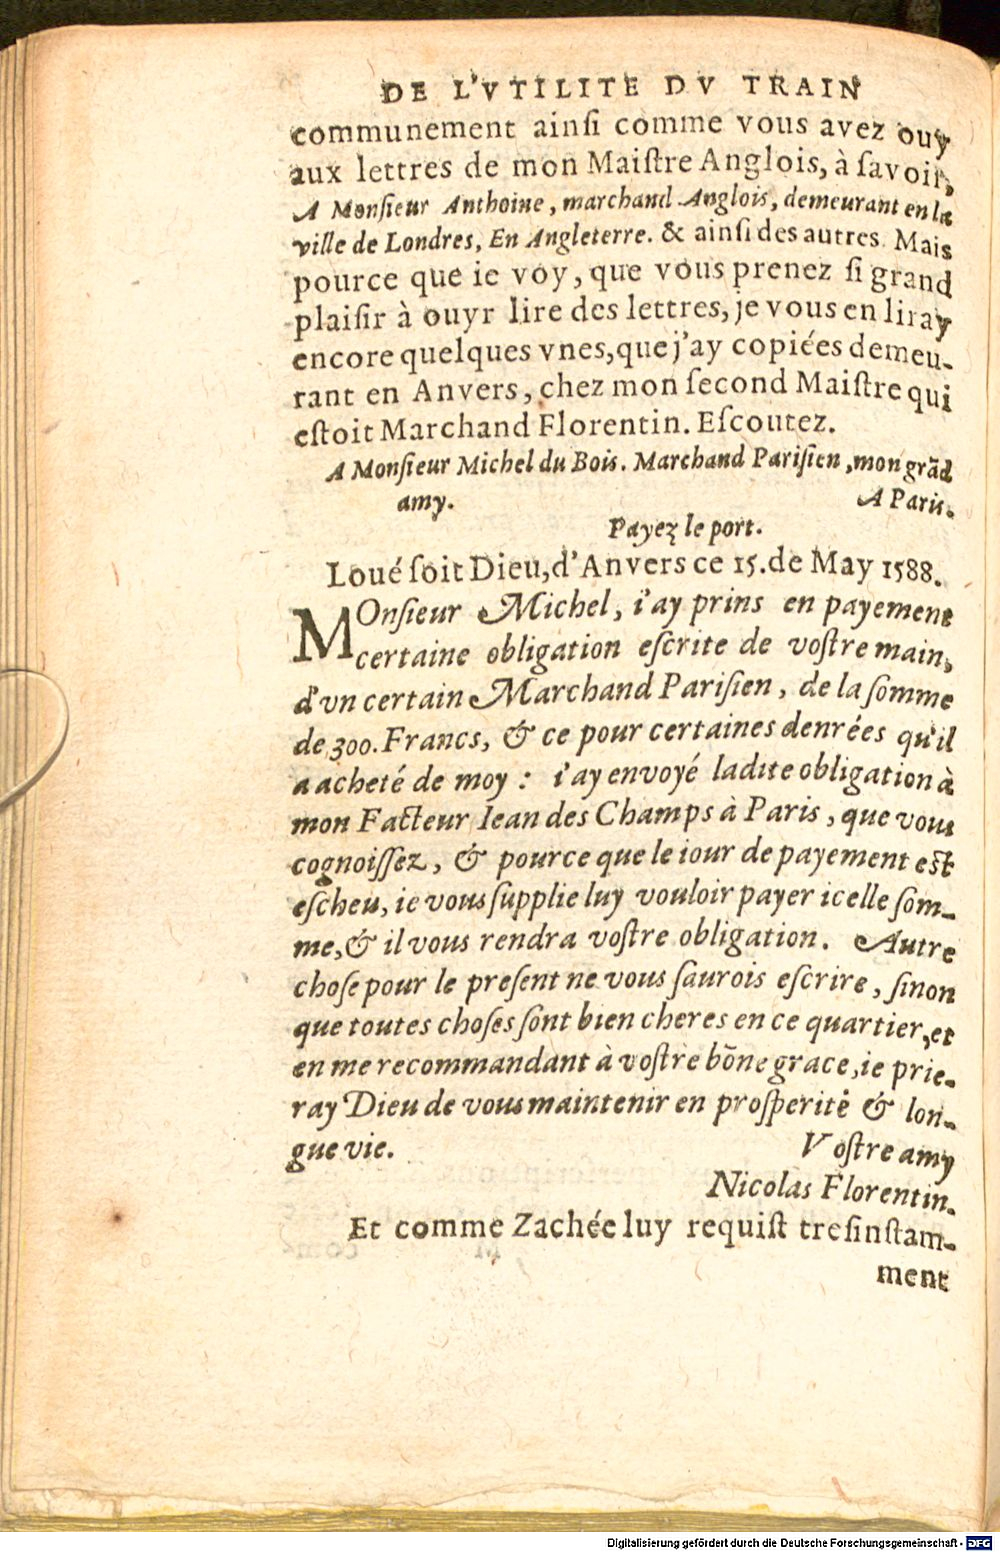 DE L'VTILITE DV TRAIN
communement ainſi comme vous avez ouy
aux lettres de mon Maiſtre Anglois, à ſavoir,
A Monſieur Anthoine, marchand Anglois, demeurant en la
ville de Londres, En Angleterre. & ainſi des autres. Mais
pource que ie voy, que vous prenez ſi grand
plaiſir à ouyr lire des lettres, je vous en liray
encore quelques vnes, que j'ay copiées demeu-
rant en Anvers, chez mon ſecond Maiſtre qui
eſtoit Marchand Florentin. Eſcoutez.
A Monſieur Michel du Bois. Marchand Pariſien, mon grãd
amy. A Paris.
Payez le port.
Loué ſoit Dieu, d'Anvers ce 15. de May 1588.
MOnſieur Michel, i'ay prins en payement
certaine obligation eſcrite de voſtre main,
d'vn certain Marchand Pariſien, de la ſomme
de 300. Francs, & ce pour certaines denrées qu'il
a acheté de moy : i'ay envoyé ladite obligation à
mon Facteur Iean des Champs à Paris, que vous
cognoiſſez, & pource que le iour de payement eſt
eſcheu, ie vous ſupplie luy vouloir payer icelle ſom-
me, & il vous rendra voſtre obligation. Autre
choſe pour le preſent ne vous ſaurois eſcrire, ſinon
que toutes choſes ſont bien cheres en ce quartier, et
en me recommandant à voſtre bõne grace, ie prie-
ray Dieu de vous maintenir en proſperité & lon-
gue vie. Voſtre amy
Nicolas Florentin.
Et comme Zachée luy requiſt treſinſtam-
ment
Digitalisierung gefördert durch die Deutsche Forschungsgemeinschaft - DFG